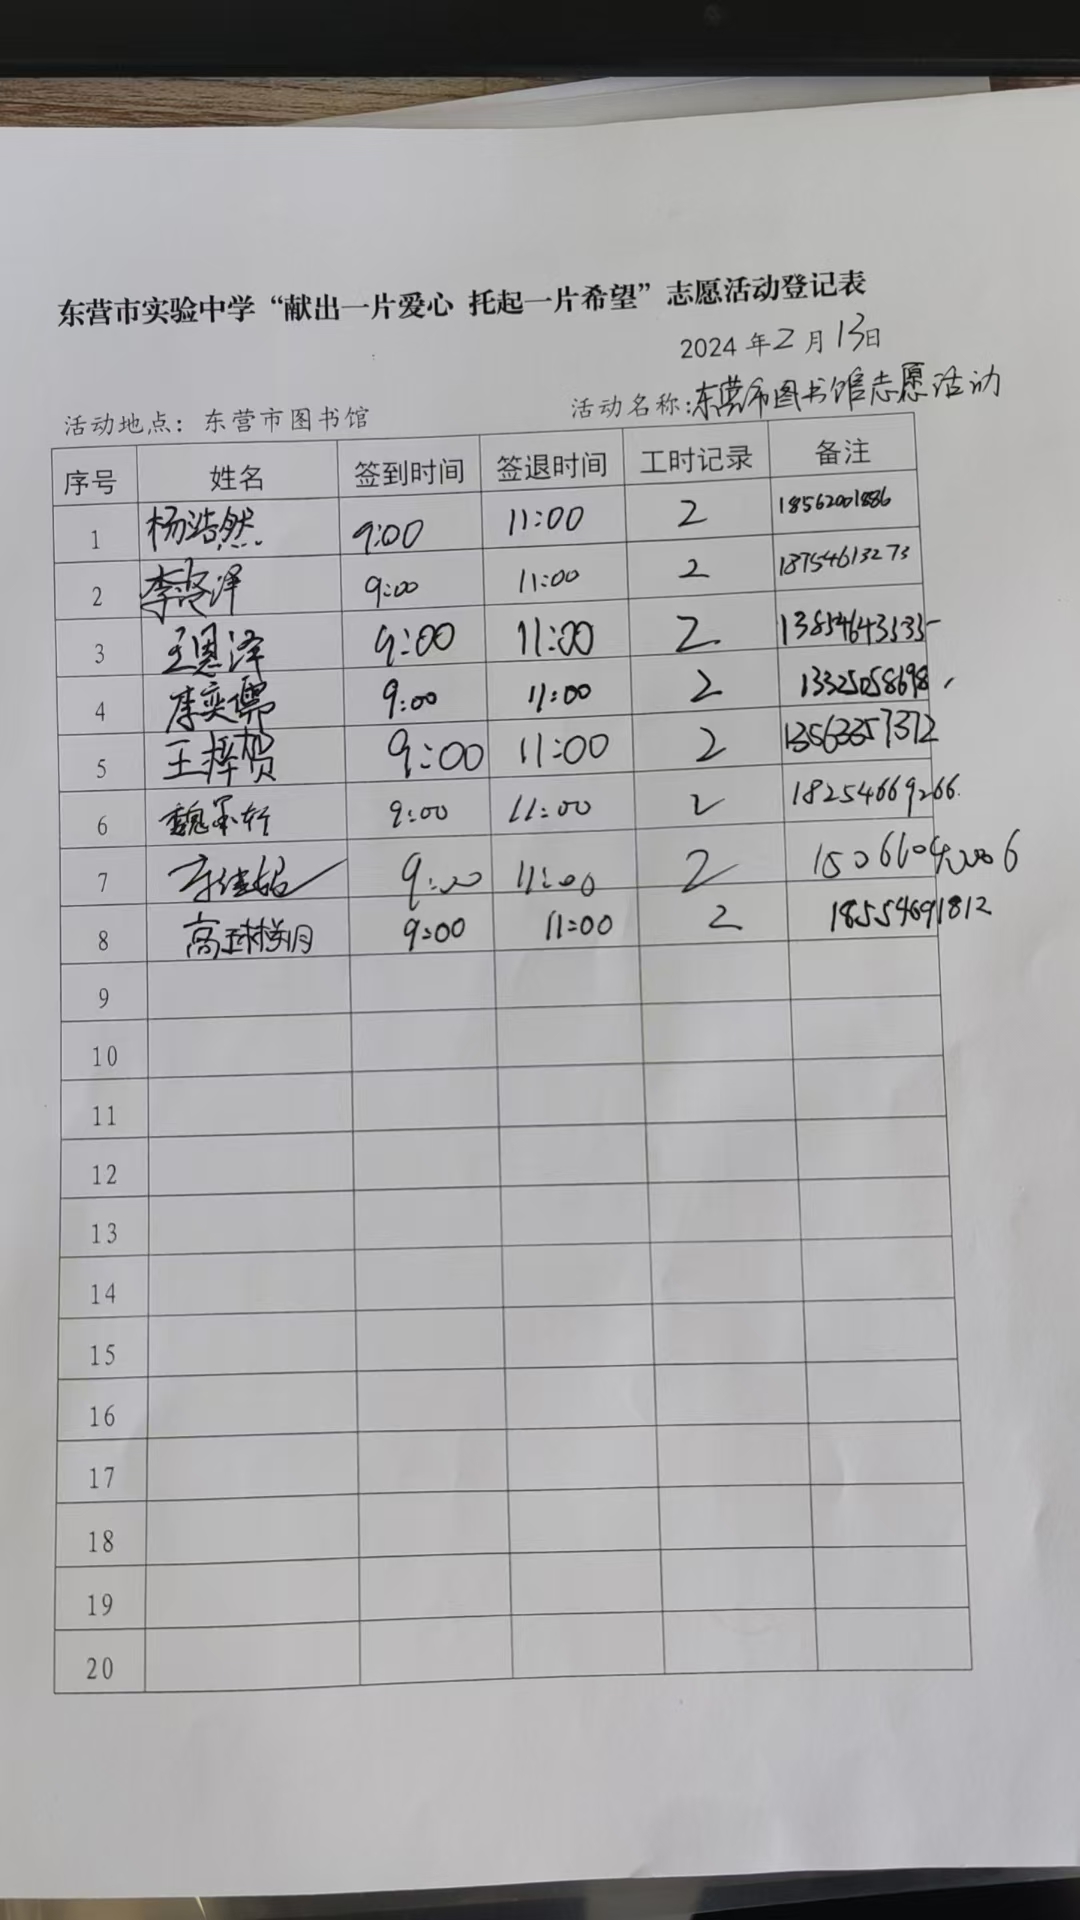 东营市实验中学“献出一片爱心 托起一片希望”志愿活动登记表
2024 年 2 月 13 日
活动地点：东营市图书馆 活动名称：东营市图书馆志愿活动
序号 姓名 签到时间 签退时间 工时记录 备注
1 杨浩然 9:00 11:00 2 18562001886
2 李 泽 9:00 11:00 2 18754613273
3 王恩泽 9:00 11:00 2 13854643535
4 李奕儒 9:00 11:00 2 13325058698
5 王梓贺 9:00 11:00 2 13563357372
6 魏 轩 9:00 11:00 2 18254669266
7 9:00 11:00 2
8 高 玥 9:00 11:00 2 18554691812
9
10
11
12
13
14
15
16
17
18
19
20